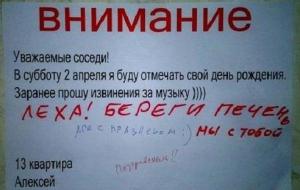 внимание
Уважаемые соседи!
В субботу 2 апреля я буду отмечать свой день рождения.
Заранее прошу извинения за музыку ))))
ЛЕХА! БЕРЕГИ ПЕЧЕНЬ
МЫ С ТОБОЙ
13 квартира
Алексей